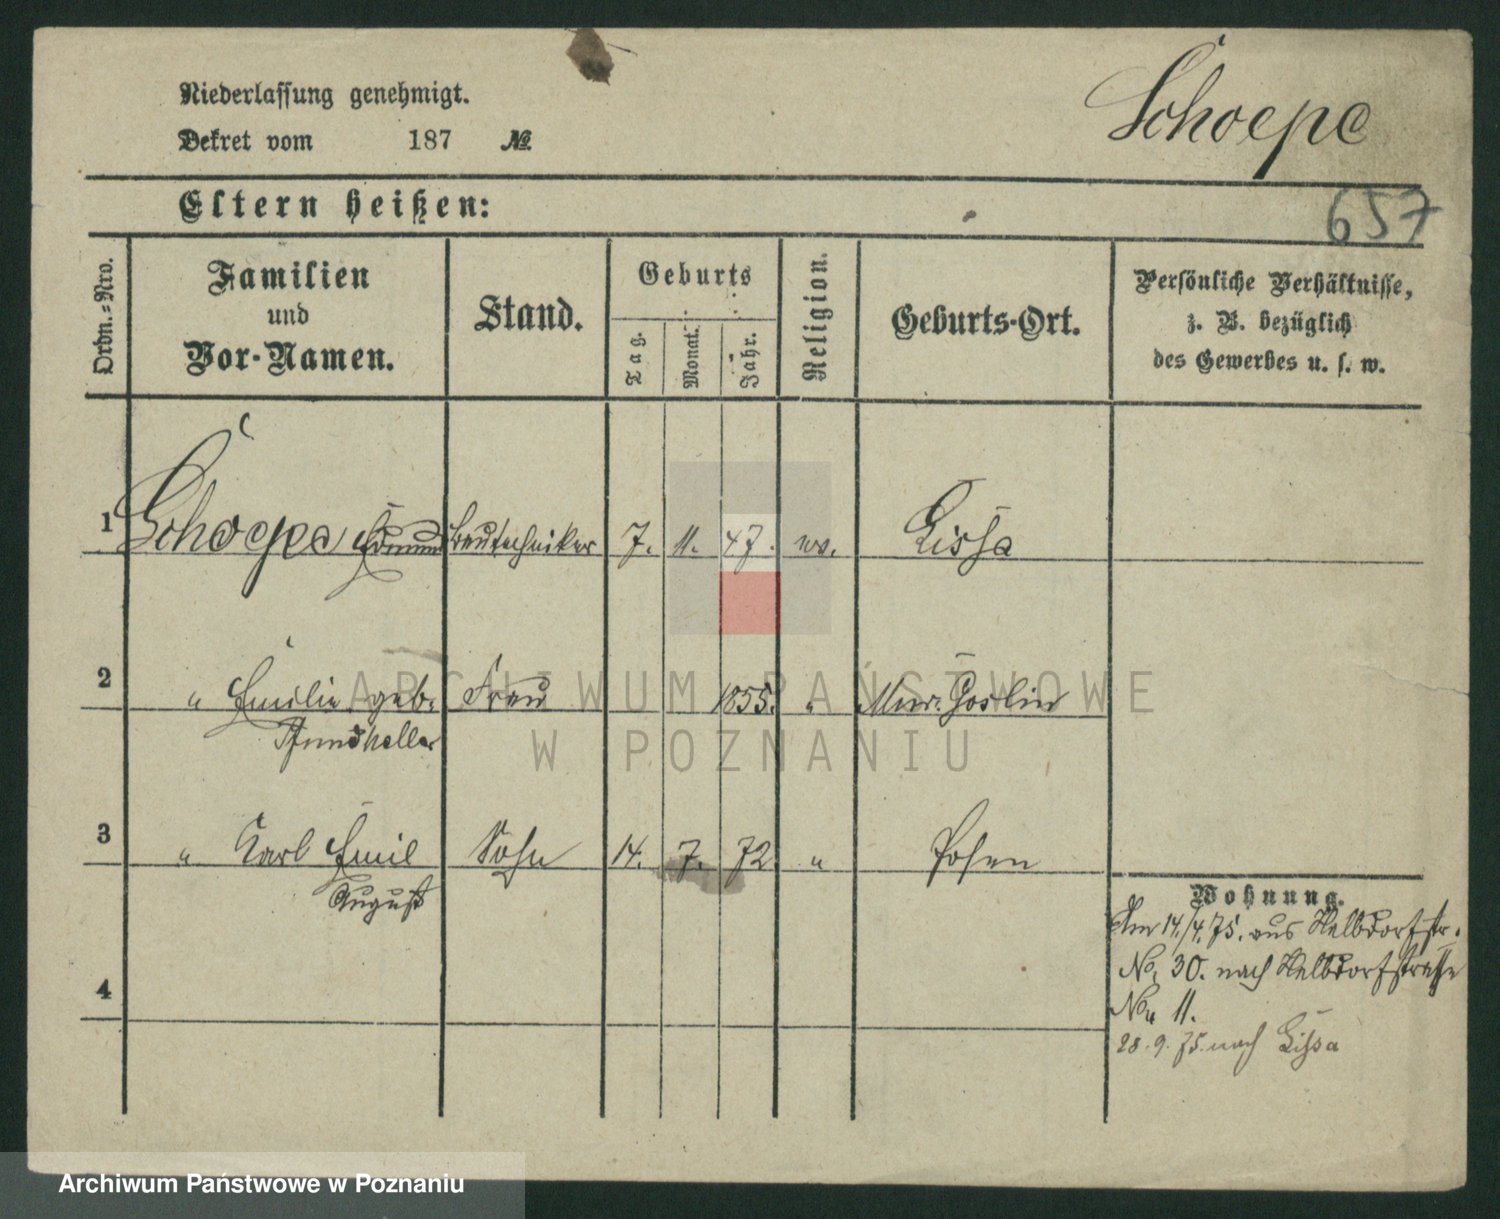 Niederlassung genehmigt.
Schoepe
Dekret vom 187 №
Eltern heißen:
657
Ordn.-Nro.
Familien
und
Vor-Namen.
Stand.
Geburts
Tag.
Monat.
Jahr.
Religion.
Geburts-Ort.
Persönliche Verhältnisse,
z. B. bezüglich
des Gewerbes u. s. w.
1 Schoepe Edmund Bautechniker 7. 11. 47. ev. Lissa
2 " Emilie geb. Frau 1855. " Mur. Goslin
Pfundheller
3 " Karl Emil Sohn 14. 7. 72. " Posen
August
4
Wohnung.
Am 14./4.75. aus Halbdorfstr.
No. 30. nach Halbdorfstraße
No. 11.
28.9.75. nach Lissa
ARCHIWUM PAŃSTWOWE
W POZNANIU
Archiwum Państwowe w Poznaniu